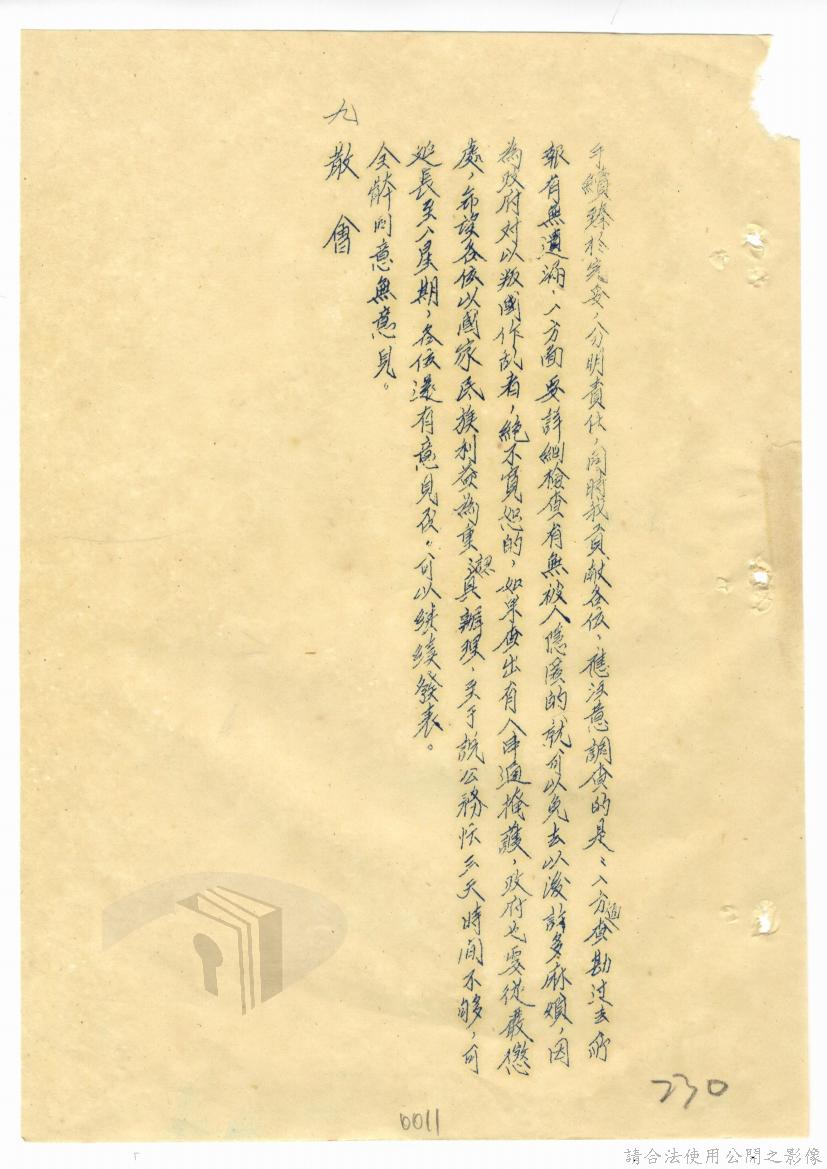 手續臻於完妥，以分明責任，同時我貢獻各位，應注意調查的是：一方面查勘过去所
報有無遺漏，一方面要詳細檢查有無被人隱匿的，就可以免去以後許多麻煩，因
為政府对以叛國作乱者，絕不寬恕的，如果查出有人串通掩護，政府也要從嚴懲
處，希望各位以國家民族利益為重，認真辦理，至于說公務忙三天時间不够，可
延長至一星期，各位還有意見否，可以继续發表。
全體同意無意見。
九 散會
230
0011
請合法使用公開之影像